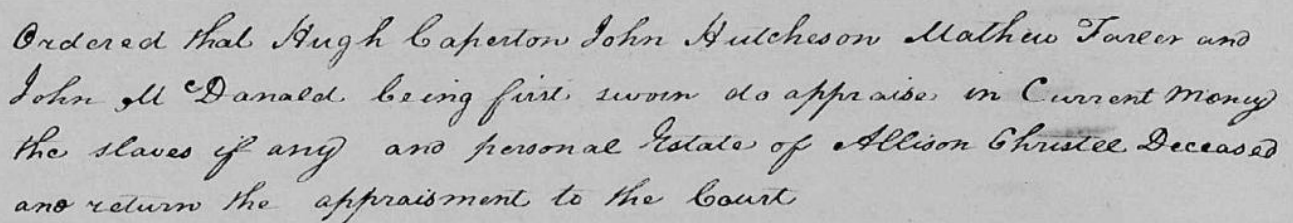 Ordered that Hugh Caperton John Hutcheson Mathew Farler and
John McDanald being first sworn do appraise in Current Money
the slaves if any and personal Estate of Allison Christee Deceased
and return the appraisment to the Court